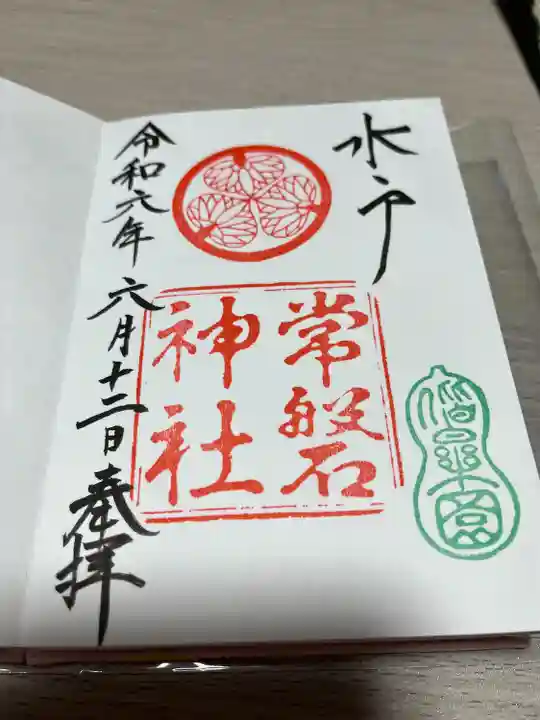 水戸
常磐
神社
令和六年 六月十二日 奉拝
偕楽園